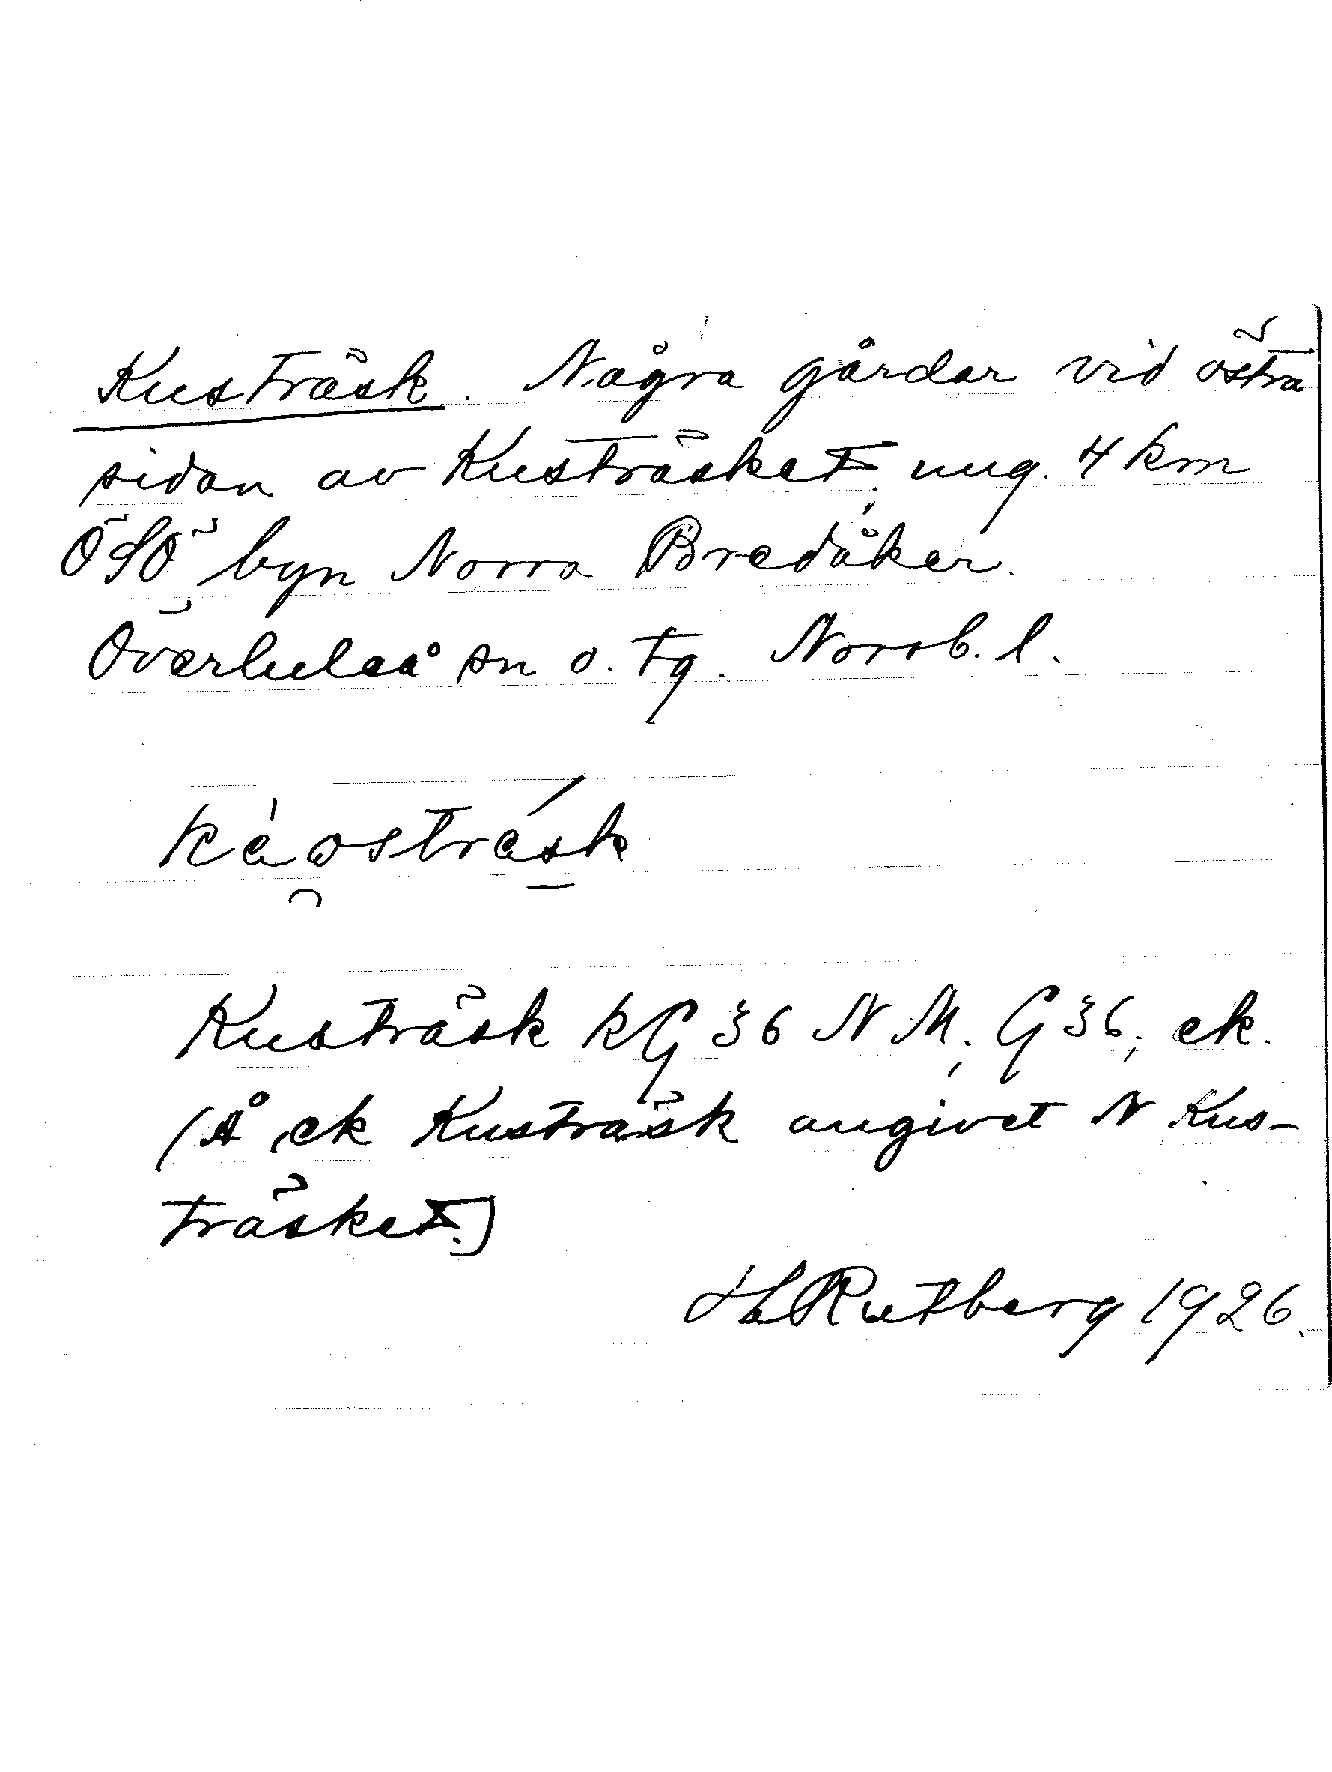 Kusträsk. Några gårdar vid östra
sidan av Kusträsket, ung. 4 km
ÖSÖ byn Norra Bredåker.
Överluleå sn o. tg. Norrb. l.
kèosträsk
Kusträsk kG 36 N M; G 36; ek.
(Å ek Kusträsk angivet N Kus-
träsket.)
HLRutberg 1926.